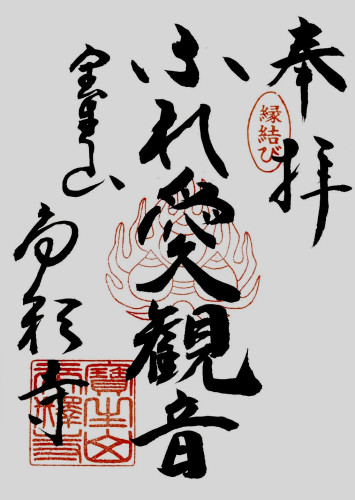 奉拝
縁結び
ふれ愛観音
宝生山
帝釈寺
寶生山
帝釋寺